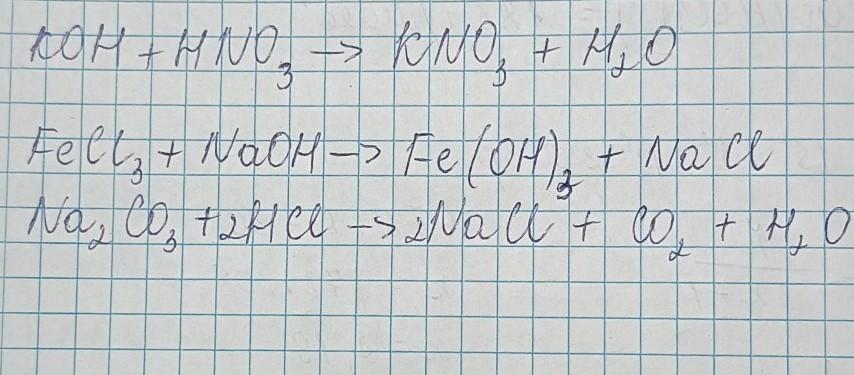 KOH + HNO₃ → KNO₃ + H₂O
FeCl₃ + NaOH → Fe(OH)₃ + NaCl
Na₂CO₃ + 2HCl → 2NaCl + CO₂ + H₂O